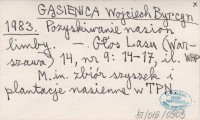 GĄSIENICA Wojciech Byrcyn
1983. Pozyskiwanie nasion
limby. — Głos Lasu (War-
szawa) 14, nr 9: 14-17, il. WHP
M.in. zbiór szyszek i
plantacje nasienne w TPN.